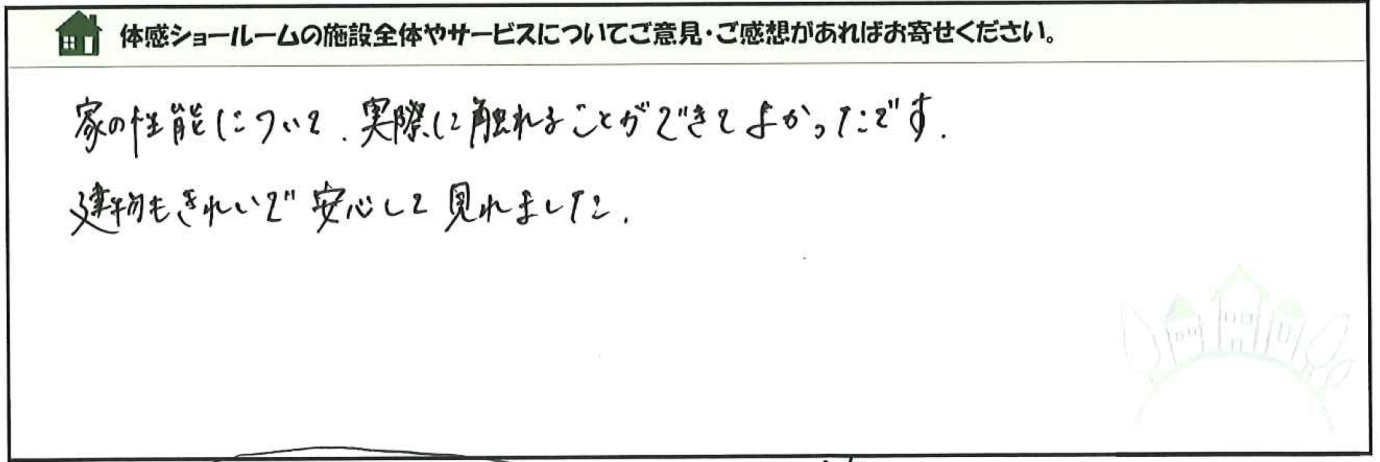 体感ショールームの施設全体やサービスについてご意見・ご感想があればお寄せください。
家の性能について、実際に触れることができてよかったです.
建物もきれいで安心して見れました.